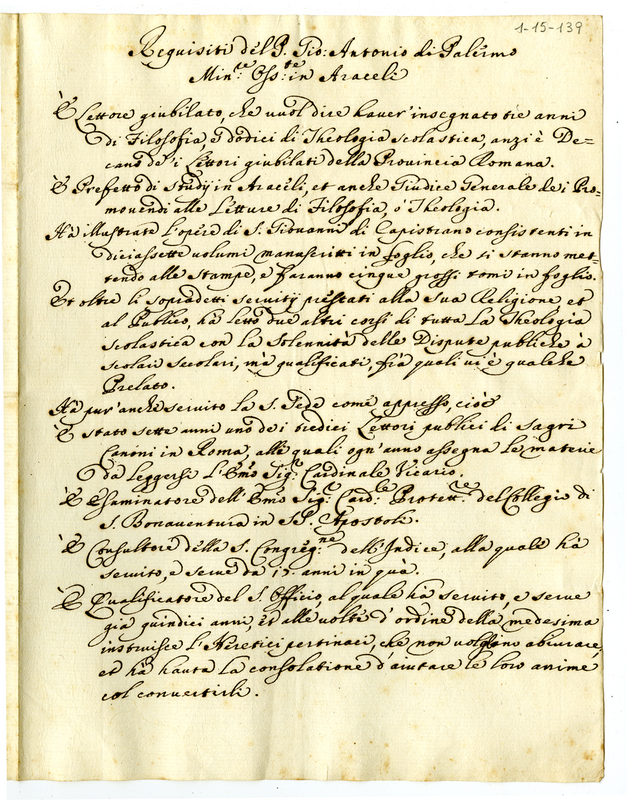 1-15-139
Requisiti del P. Gio: Antonio di Palermo
Min.re Oss.te in Araceli
È Lettore giubilato, che vuol dire haver' insegnato tre anni
di Filosofia, e dodici di Theologia scolastica, anzi è De=
cano de i Lettori giubilati della Provincia Romana.
È Prefetto di Studij in Araceli, et anche Giudice Generale de i Pro=
movendi alle Letture di Filosofia, ò Theologia.
Hà illustrate l'opere di S. Giovanni di Capistrano consistenti in
diciassette volumi manuscritti in foglio, che si stanno met=
tendo alle stampe, e faranno cinque grossi tomi in foglio.
Et oltre li sopradetti servitij prestati alla sua Religione et
al Publico, hà letto due altri corsi di tutta La Theologia
scolastica con la solennità delle Dispute publiche à
scolari secolari, mà qualificati, frà quali vi è qualche
Prelato.
Hà pur' anche servito la S. Sede come appresso, cioè
È stato sette anni uno de i tredici Lettori publici di sagri
Canoni in Roma, alli quali ogn' anno assegna le materie
da leggersi l'Em̃o Sig.r Cardinale Vicario.
È Esaminatore dell' Em̃o Sig.r Card.le Protett.re del Collegio di
S. Bonaventura in SS. Apostoli.
È Consultore della S. Congreg.ne dell' Indice, alla quale hà
servito, e serve da 17. anni in quà.
È Qualificatore del S. Officio, al quale hà servito, e serve
già quindici anni, et alle volte d'ordine della medesima
instruisce l'Heretici pertinaci, che non volgono abiurare,
et hà hauta la consolatione d'aiutare le loro anime
col convertirli.